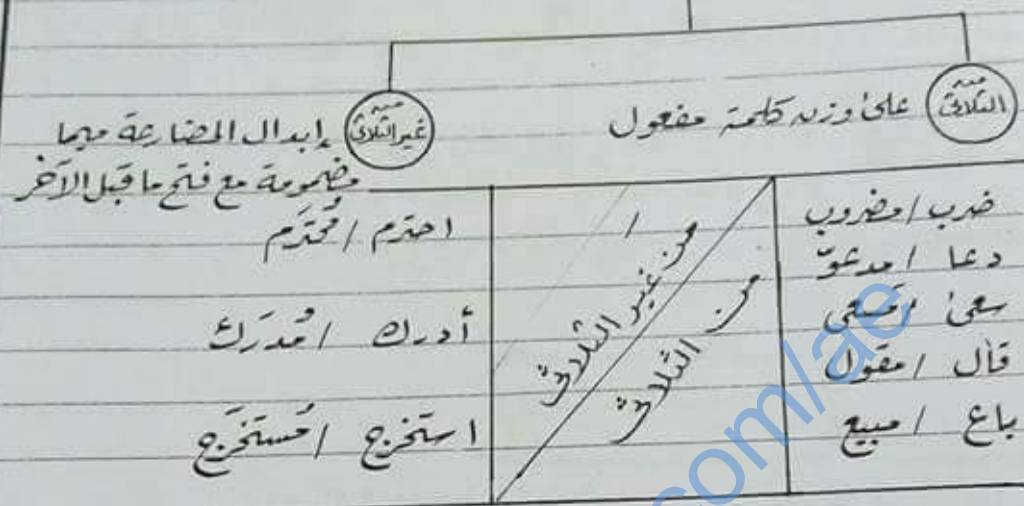 من الثلاثي على وزن كلمة مفعول
من غير الثلاثي إبدال المضارعة ميما
مضمومة مع فتح ما قبل الآخر
ضرب / مضروب
دعا / مدعوّ
سعى / مَسعى
قال / مقول
باع / مبيع
من الثلاثي
من غير الثلاثي
احترم / مُحترَم
أدرك / مُدرَك
استخرج / مُستخرَج
com/ae